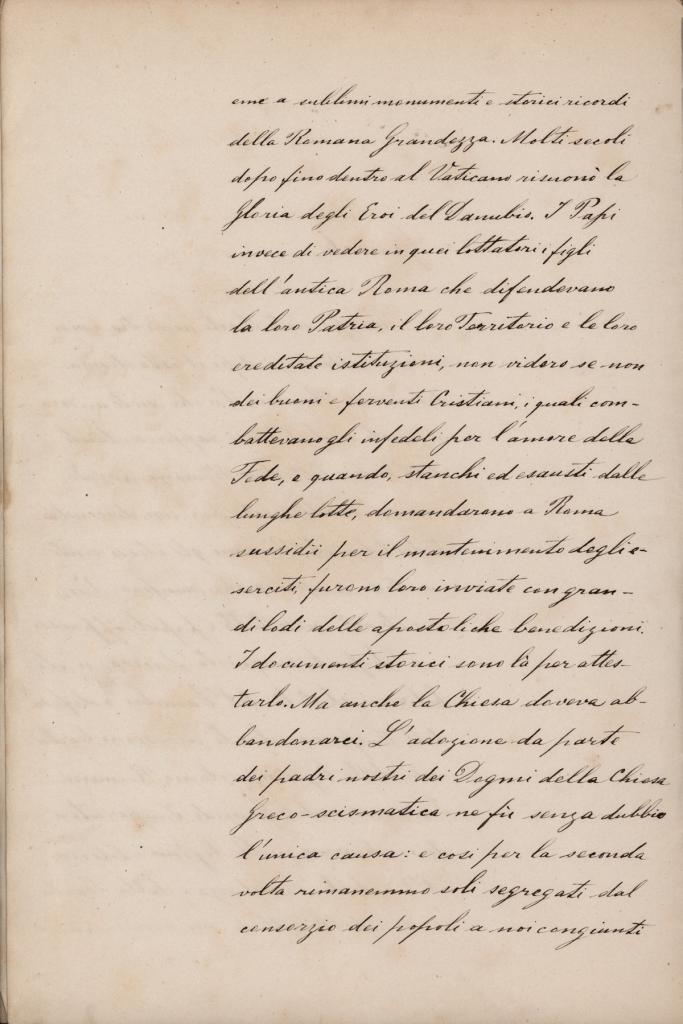 eme a sublimi monumenti e storici ricordi
della Romana Grandezza. Molti secoli
dopo fino dentro al Vaticano risuonò la
Gloria degli Eroi del Danubio. I Papi
invece di vedere in quei lottatori i figli
dell'antica Roma che difendevano
la loro Patria, il loro Territorio e le loro
ereditate istituzioni, non videro se non
dei buoni e ferventi Cristiani, i quali com-
battevano gli infedeli per l'amore della
Fede, e quando, stanchi ed esausti dalle
lunghe lotte, domandarono a Roma
sussidii per il mantenimento degli e-
serciti, furono loro inviate con gran-
di lodi delle apostoliche benedizioni.
I documenti storici sono là per attes-
tarlo. Ma anche la Chiesa doveva ab-
bandonarci. L'adozione da parte
dei padri nostri dei Dogmi della Chiesa
Greco-scismatica ne fù senza dubbio
l'unica causa: e così per la seconda
volta rimanemmo soli segregati dal
consorzio dei popoli a noi congiunti